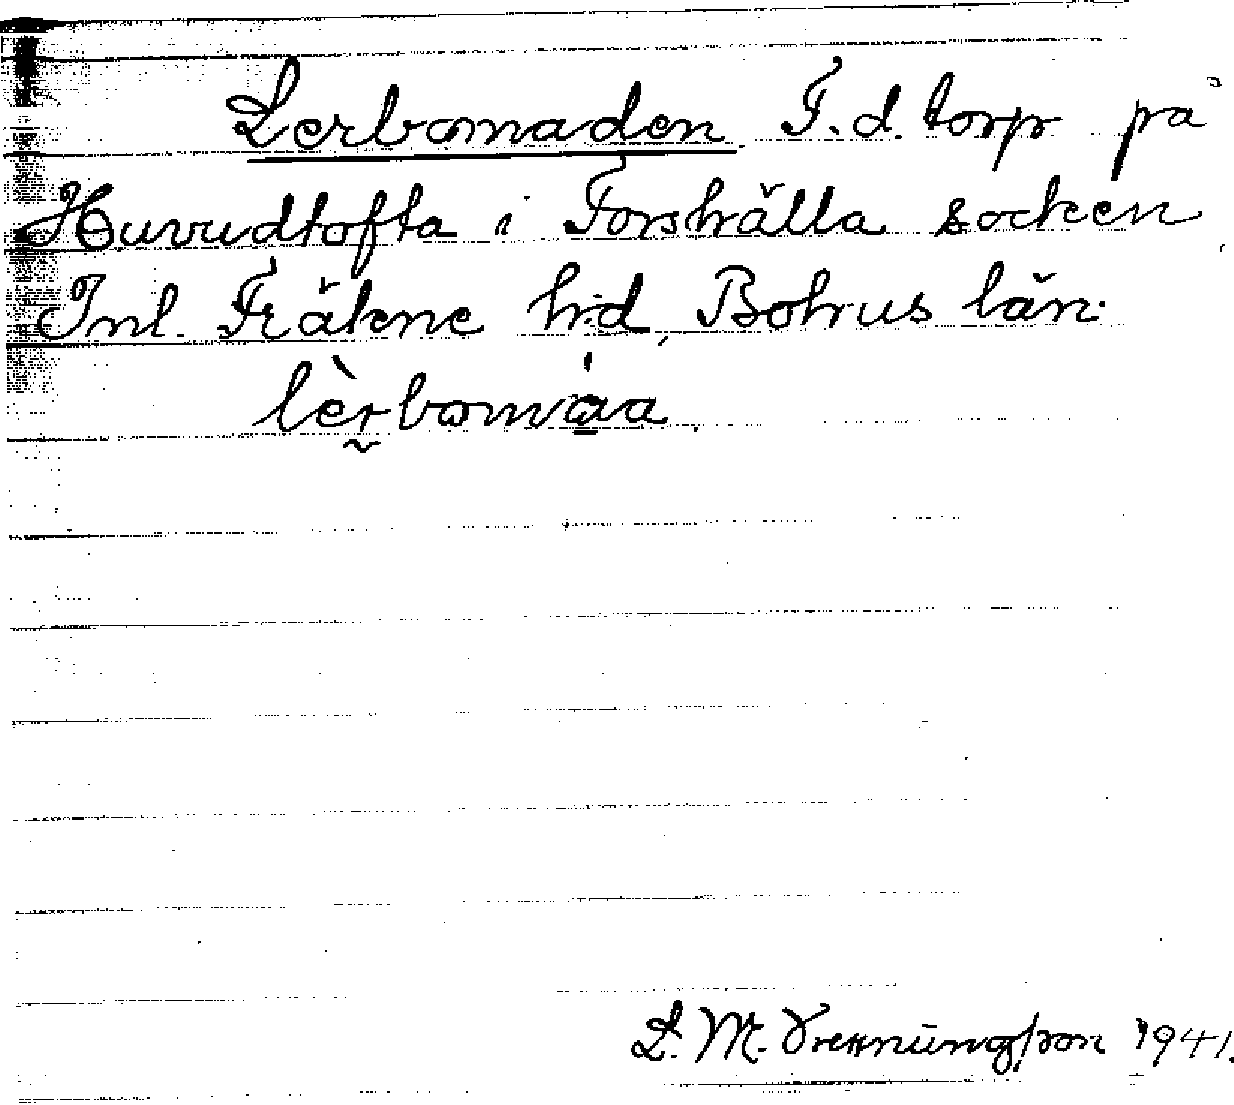 Lerbomaden F.d. torp på
Huvudtofta i Forshälla socken
Inl. Fräkne hd Bohus län.
lèrbomáa
L. M. 1941.